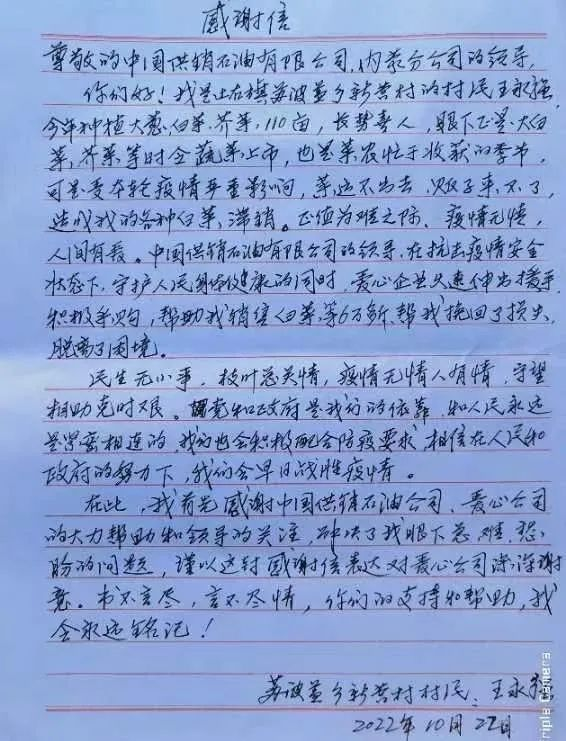 感谢信
尊敬的中国供销石油有限公司,内蒙分公司的领导,
你们好!我是土右旗苏波盖乡新营村的村民王永强,
今年种植大葱、白菜、芥菜,110亩,长势喜人,眼下正是大白
菜、芥菜等时令蔬菜上市,也是菜农忙于收获的季节,
可是受本轮疫情严重影响,菜运不出去,贩子来不了,
造成我的各种白菜,滞销。正值为难之际、疫情无情,
人间有爱。中国供销石油有限公司的领导,在抗击疫情安全
状态下,守护人民身体健康的同时,爱心企业火速伸出援手,
积极采购,帮助我销售白菜等6万斤,帮我挽回了损失,
脱离了困境。
民生无小事,枝叶总关情,疫情无情人有情,守望
相助克时艰。党和政府是我们的依靠,和人民永远
是紧密相连的,我们也会积极配合防疫要求,相信在人民和
政府的努力下,我们会早日战胜疫情。
在此,我首先感谢中国供销石油公司、爱心公司
的大力帮助和领导的关注,解决了我眼下急、难、愁
盼的问题,谨以这封感谢信表达对爱心公司深深谢
意。书不言尽,言不尽情,你们的支持和帮助,我
会永远铭记!
苏波盖乡新营村村民:王永强
2022年10月22日
Triple Camera